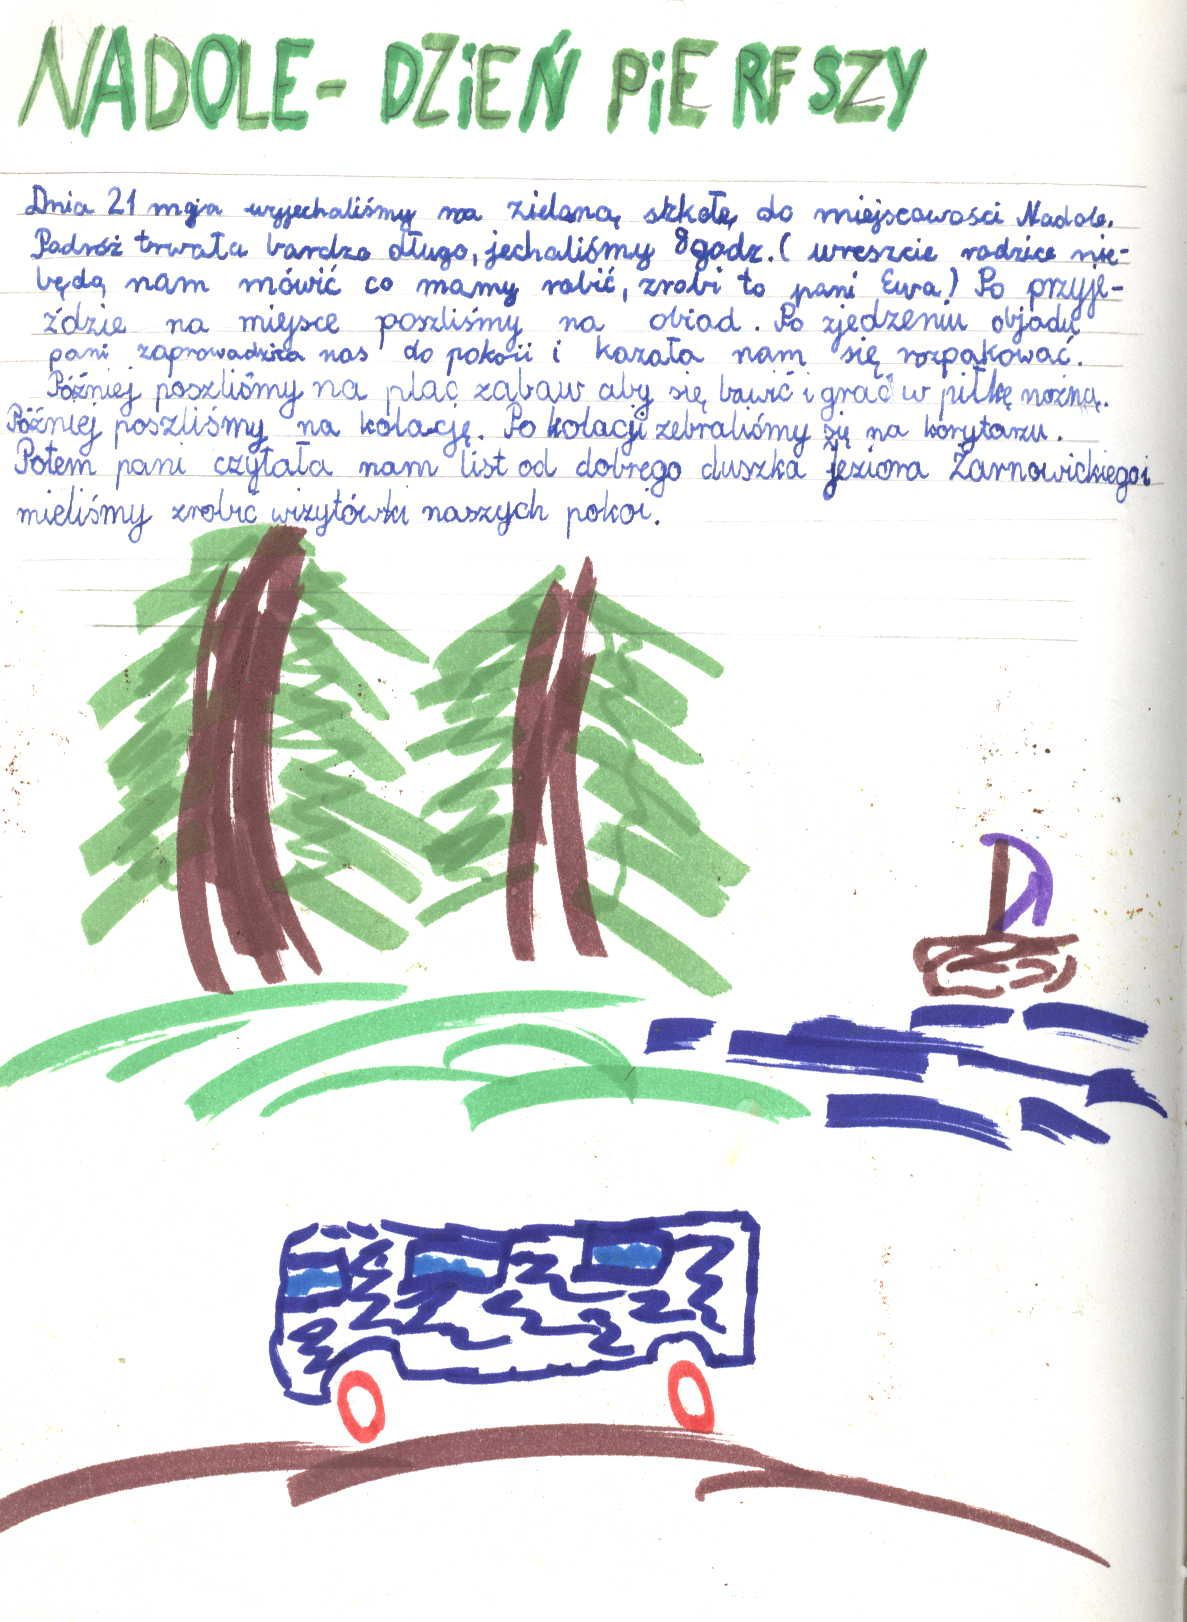 NADOLE - DZiEŃ PiERFSZY
Dnia 21 maja wyjechaliśmy na zieloną szkołę do miejscowości Nadole.
Podróż trwała bardzo długo, jechaliśmy 8godz. ( wreszcie rodzice nie-
będą nam mówić co mamy robić, zrobi to pani Ewa) Po przyje-
ździe na miejsce poszliśmy na obiad. Po zjedzeniu objadu
pani zaprowadziła nas do pokoii i kazała nam się rozpakować.
Później poszliśmy na plac zabaw aby się bawić i grać w piłkę nożną.
Później poszliśmy na kolację. Po kolacji zebraliśmy się na korytarzu.
Potem pani czytała nam list od dobrego duszka jeziora Żarnowickiego i
mieliśmy zrobić wizytówki naszych pokoi.